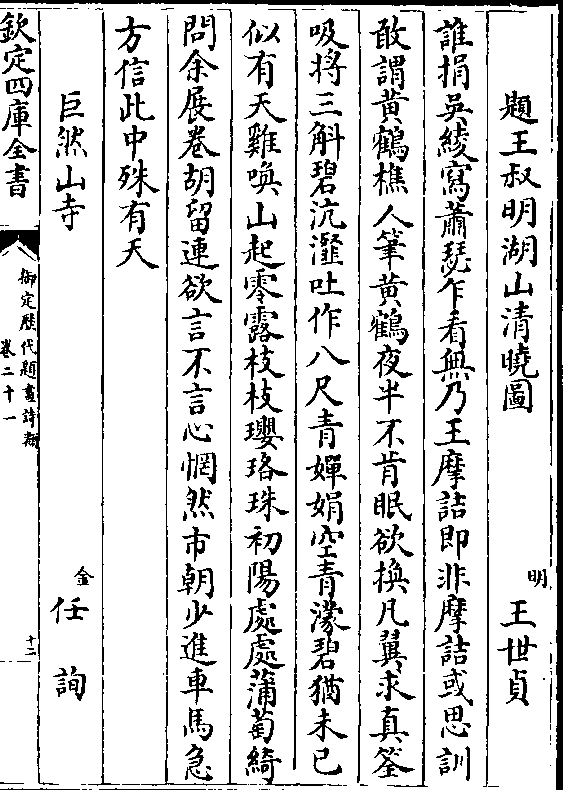 題王叔明湖山清曉圖 明 王世貞
誰捐吳綾寫蕭瑟乍看無乃王摩詰即非摩詰或思訓
敢謂黃鶴樵人筆黃鶴夜半不肯眠欲換凡翼求真筌
吸將三斛碧沆瀣吐作八尺青嬋娟空青濛碧猶未已
似有天雞喚山起零露枝枝瓔珞珠初陽處處蒲萄綺
問余展卷胡留連欲言不言心惘然市朝少進車馬急
方信此中殊有天
巨然山寺 金 任詢
欽定四庫全書 御定歷代題畫詩類 卷二十一 十二